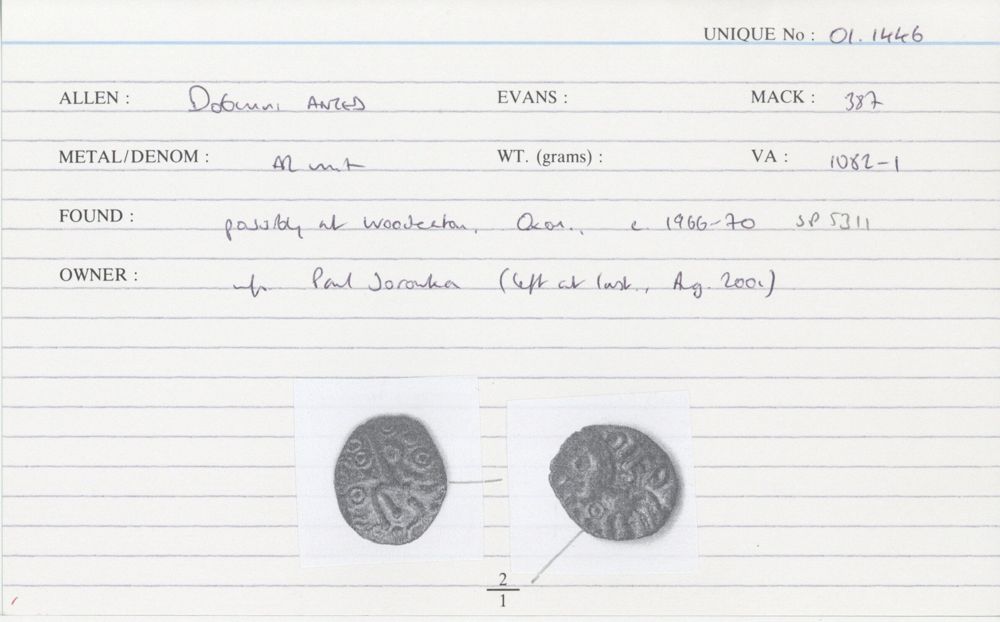 UNIQUE No : 01.1446
ALLEN : Dobunni ANTED EVANS : MACK : 387
METAL/DENOM : AR unit WT. (grams) : VA : 1082-1
FOUND : possibly at Woodeaton, Oxon., c. 1966-70 SP 5311
OWNER : Paul (left at Inst., Aug. 2001)
2
1